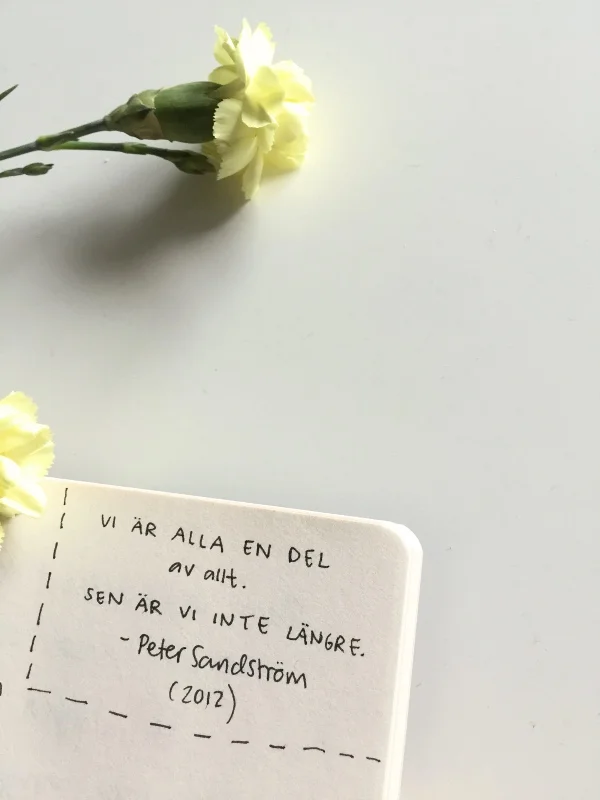 VI ÄR ALLA EN DEL
av allt.
SEN ÄR VI INTE LÄNGRE.
- Peter Sandström
(2012)